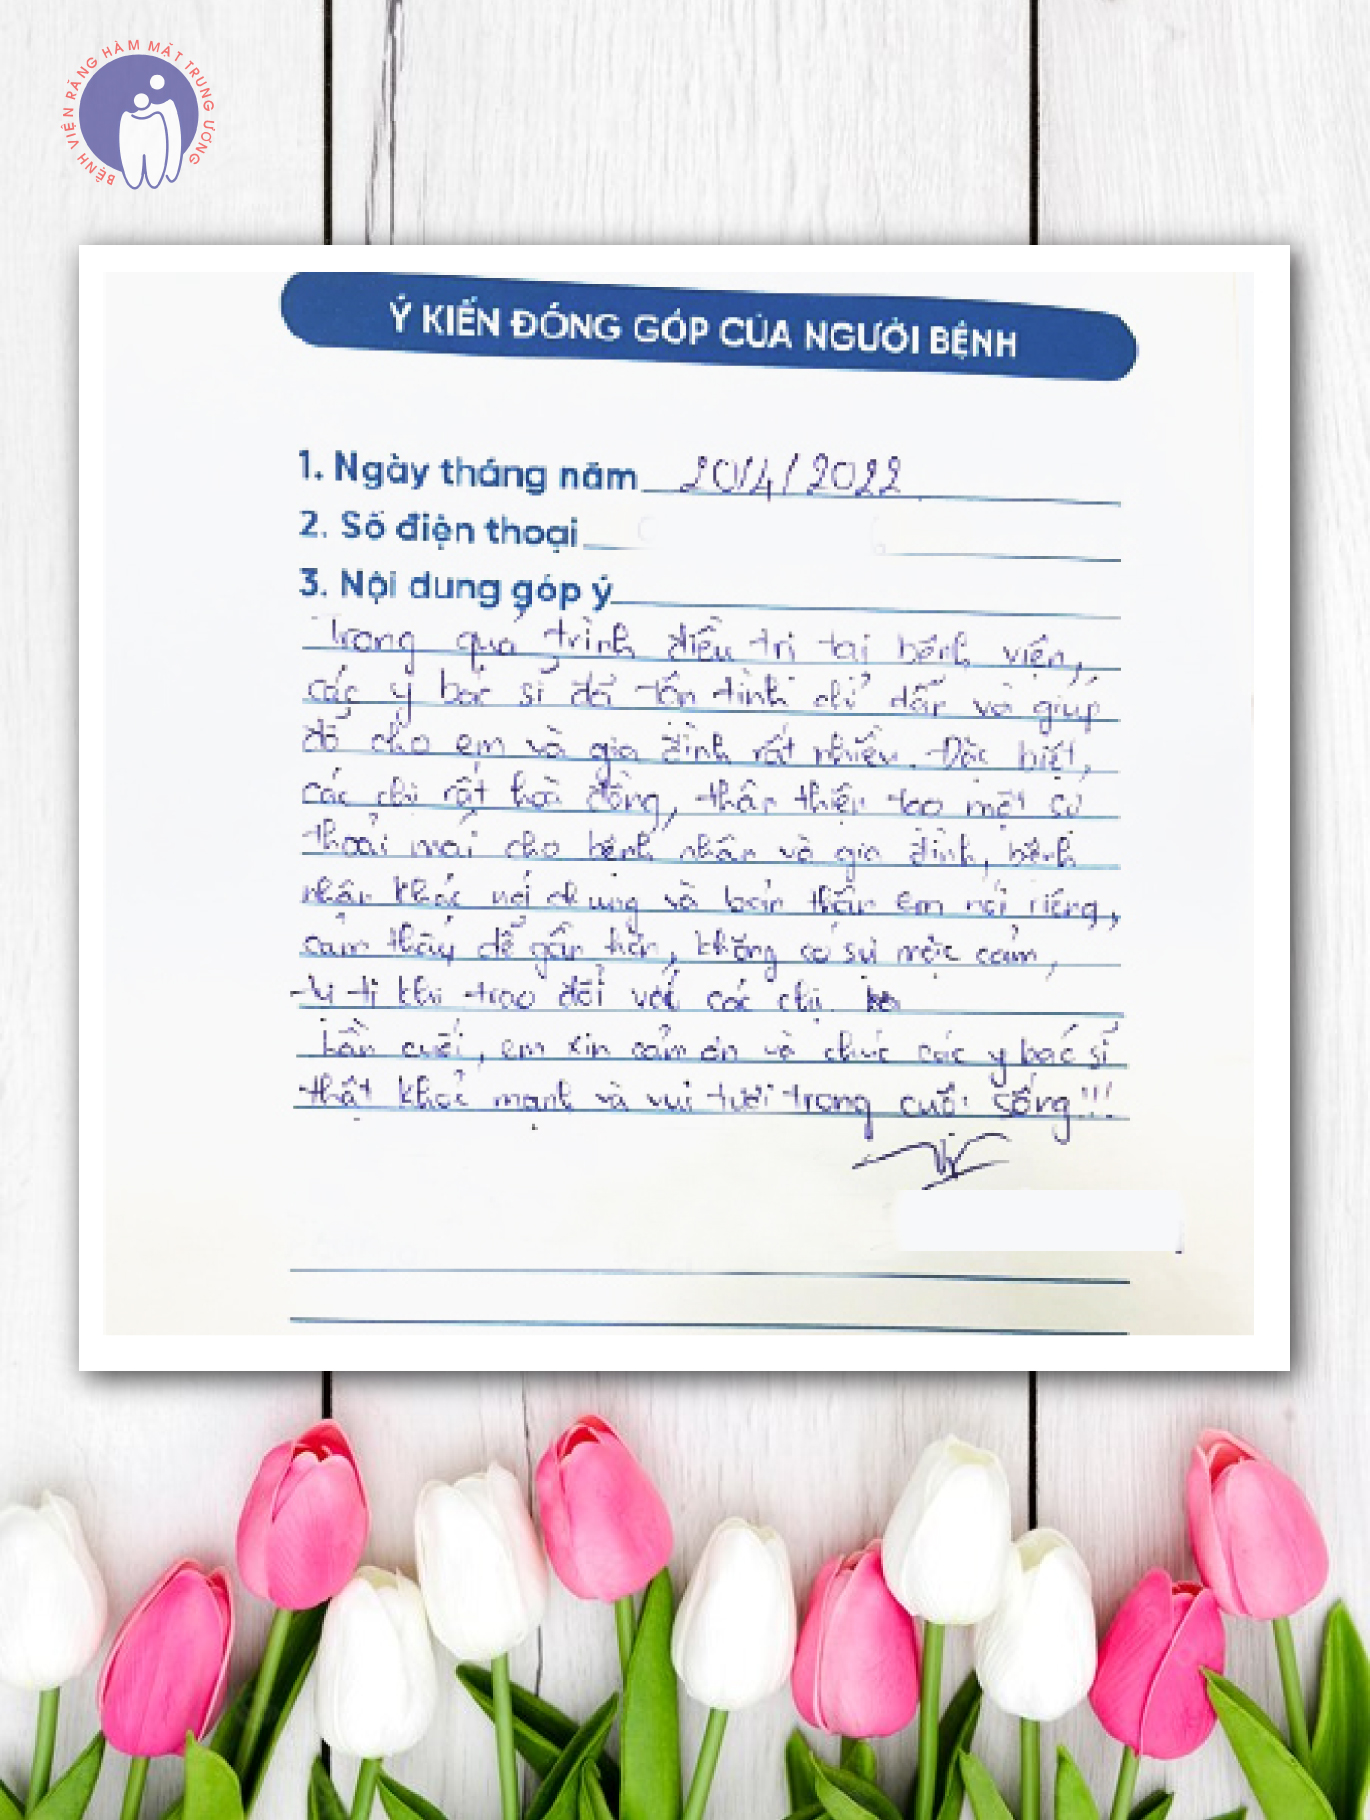 BỆNH VIỆN RĂNG HÀM MẶT TRUNG ƯƠNG
Ý KIẾN ĐÓNG GÓP CỦA NGƯỜI BỆNH
1. Ngày tháng năm 20/4/2022
2. Số điện thoại
3. Nội dung góp ý
Trong quá trình điều trị tại bệnh viện,
các y bác sĩ đã tận tình chỉ dẫn và giúp
đỡ cho em và gia đình rất nhiều. Đặc biệt,
các chị rất hoà đồng, thân thiện tạo một sự
thoải mái cho bệnh nhân và gia đình, bệnh
nhân khác nói chung và bản thân em nói riêng,
cảm thấy dễ gần hơn, không có sự mặc cảm,
tự ti khi trao đổi với các chị.
Lần cuối, em xin cảm ơn và chúc các y bác sĩ
thật khoẻ mạnh và vui tươi trong cuộc sống!!!